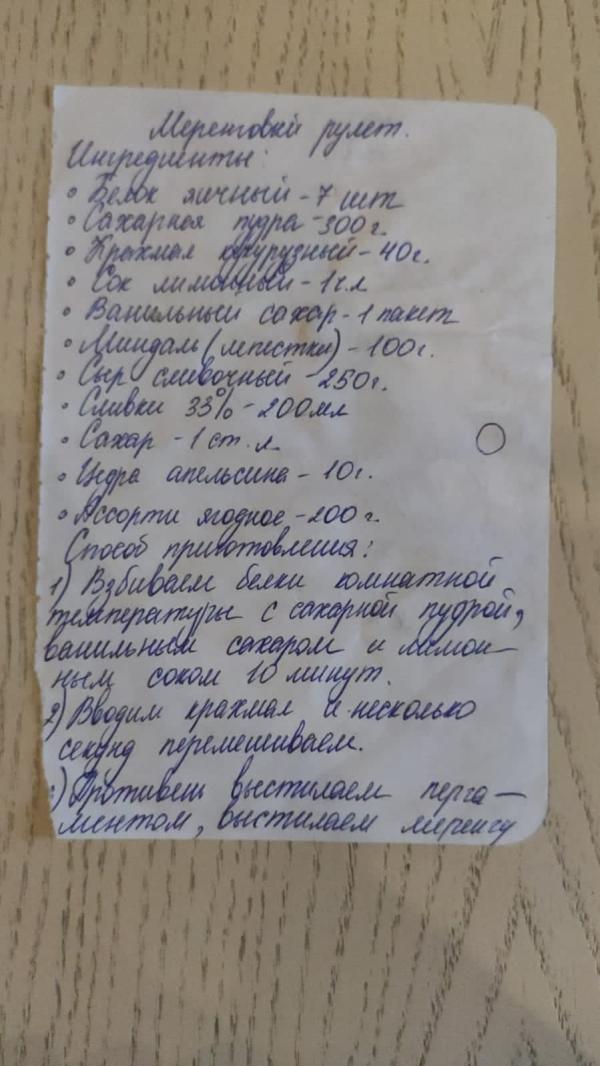 Меренговый рулет.
Ингредиенты:
• Белок яичный - 7 шт
• Сахарная пудра - 300 г.
• Крахмал кукурузный - 40 г.
• Сок лимонный - 1 ч.л
• Ванильный сахар - 1 пакет
• Миндаль (лепестки) - 100 г.
• Сыр сливочный - 250 г.
• Сливки 33% - 200 мл
• Сахар - 1 ст. л.
• Цедра апельсина - 10 г.
• Ассорти ягодное - 200 г.
Способ приготовления:
1) Взбиваем белки комнатной
температуры с сахарной пудрой,
ванильным сахаром и лимон-
ным соком 10 минут.
2) Вводим крахмал и несколько
секунд перемешиваем.
) Противень выстилаем перга-
ментом, выстилаем меренгу